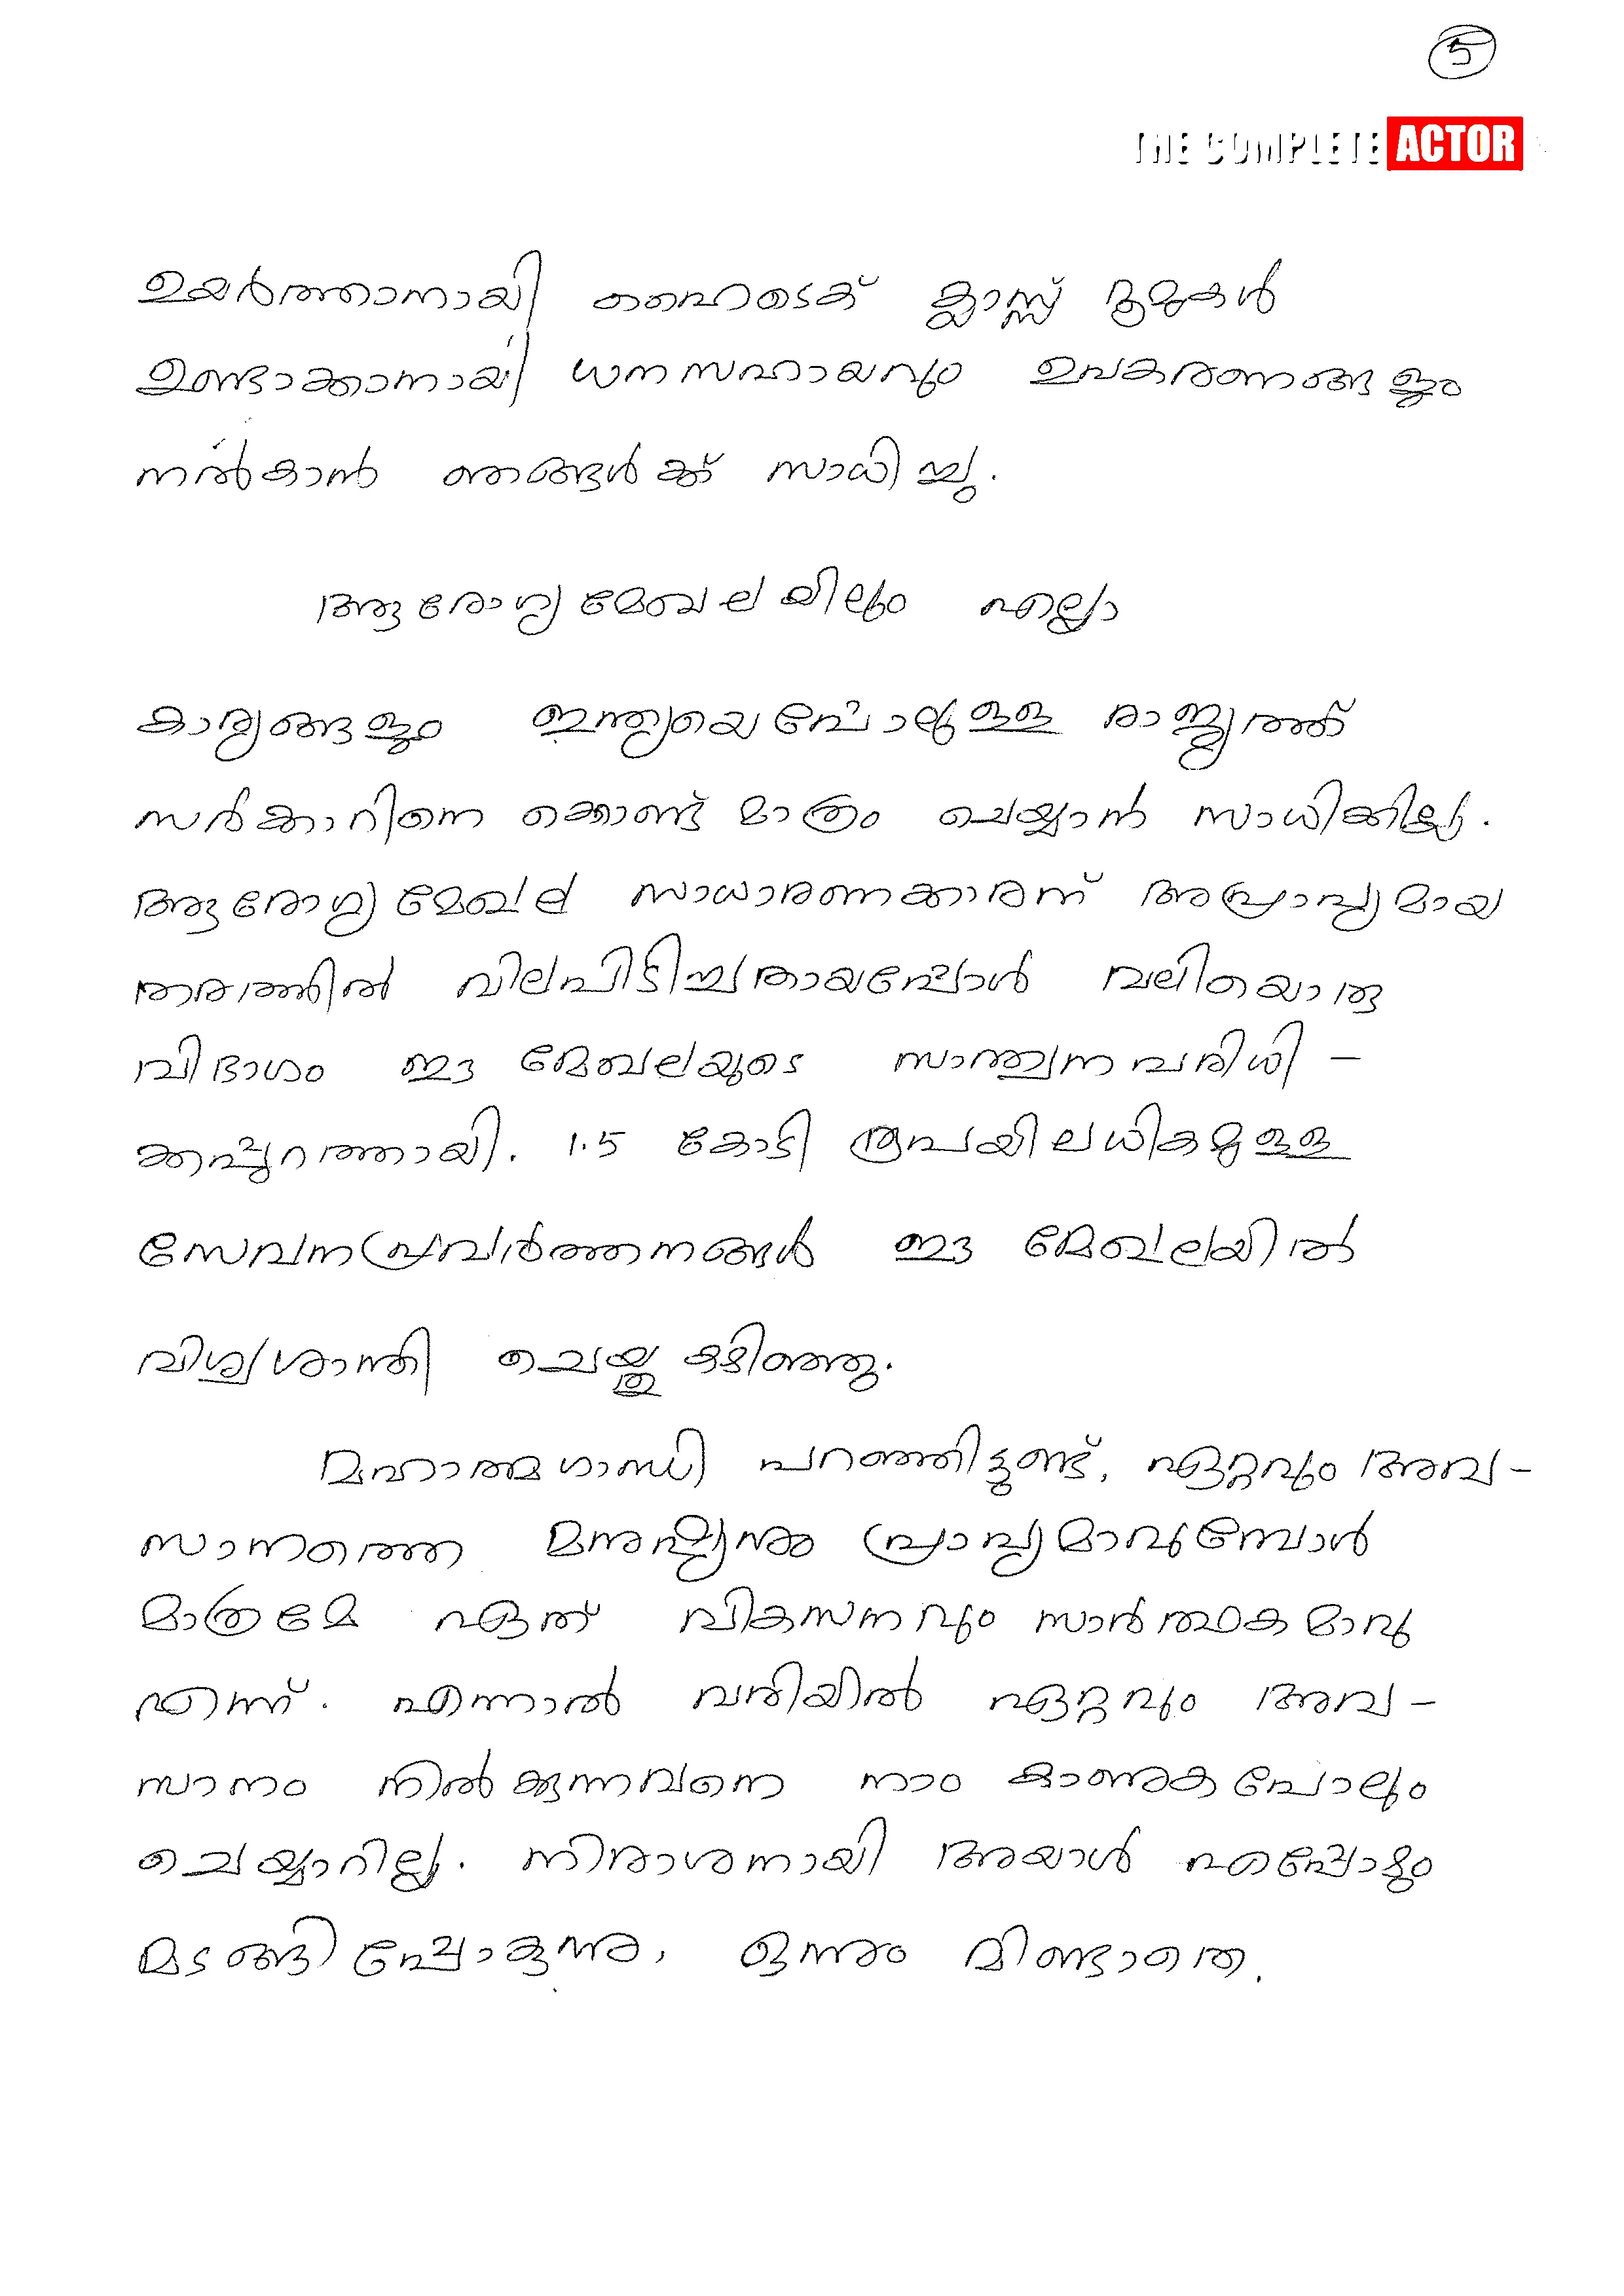 5
THE COMPLETE ACTOR
ഉയർത്താനായി ഹൈടെക് ക്ലാസ്സ് റൂമുകൾ
ഉണ്ടാക്കാനായി ധനസഹായവും ഉപകരണങ്ങളും
നൽകാൻ ഞങ്ങൾക്ക് സാധിച്ചു.
ആരോഗ്യമേഖലയിലും എല്ലാ
കാര്യങ്ങളും ഇന്ത്യയെപ്പോലുള്ള രാജ്യത്ത്
സർക്കാറിനെ ക്കൊണ്ട് മാത്രം ചെയ്യാൻ സാധിക്കില്ല.
ആരോഗ്യമേഖല സാധാരണക്കാരന് അപ്രാപ്യമായ
തരത്തിൽ വിലപിടിച്ചതായപ്പോൾ വലിയൊരു
വിഭാഗം ഈ മേഖലയുടെ സാന്ത്വനപരിധി -
ക്കപ്പുറത്തായി. 1.5 കോടി രൂപയിലധികമുള്ള
സേവനപ്രവർത്തനങ്ങൾ ഈ മേഖലയിൽ
വിശ്വശാന്തി ചെയ്തു കഴിഞ്ഞു.
മഹാത്മഗാന്ധി പറഞ്ഞിട്ടുണ്ട്, ഏറ്റവും അവ -
സാനത്തെ മനുഷ്യനും പ്രാപ്യമാവുമ്പോൾ
മാത്രമേ ഏത് വികസനവും സാർത്ഥകമാവൂ
എന്ന്. എന്നാൽ വരിയിൽ ഏറ്റവും അവ -
സാനം നിൽക്കുന്നവനെ നാം കാണുക പോലും
ചെയ്യാറില്ല. നിരാശനായി അയാൾ എപ്പോഴും
മടങ്ങിപ്പോകുന്നു, ഒന്നും മിണ്ടാതെ.